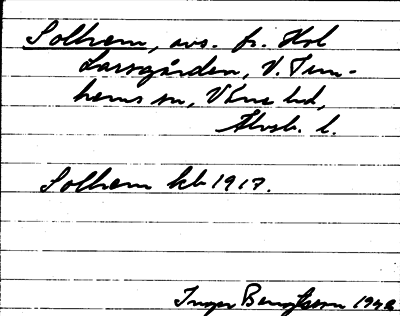 Solhem, avs. fr. Hol
Larsgården, V. Tun-
hems sn, Väne hd,
Älvsb. l.
Solhem kb 1917.
Inger Bengtsson 1942